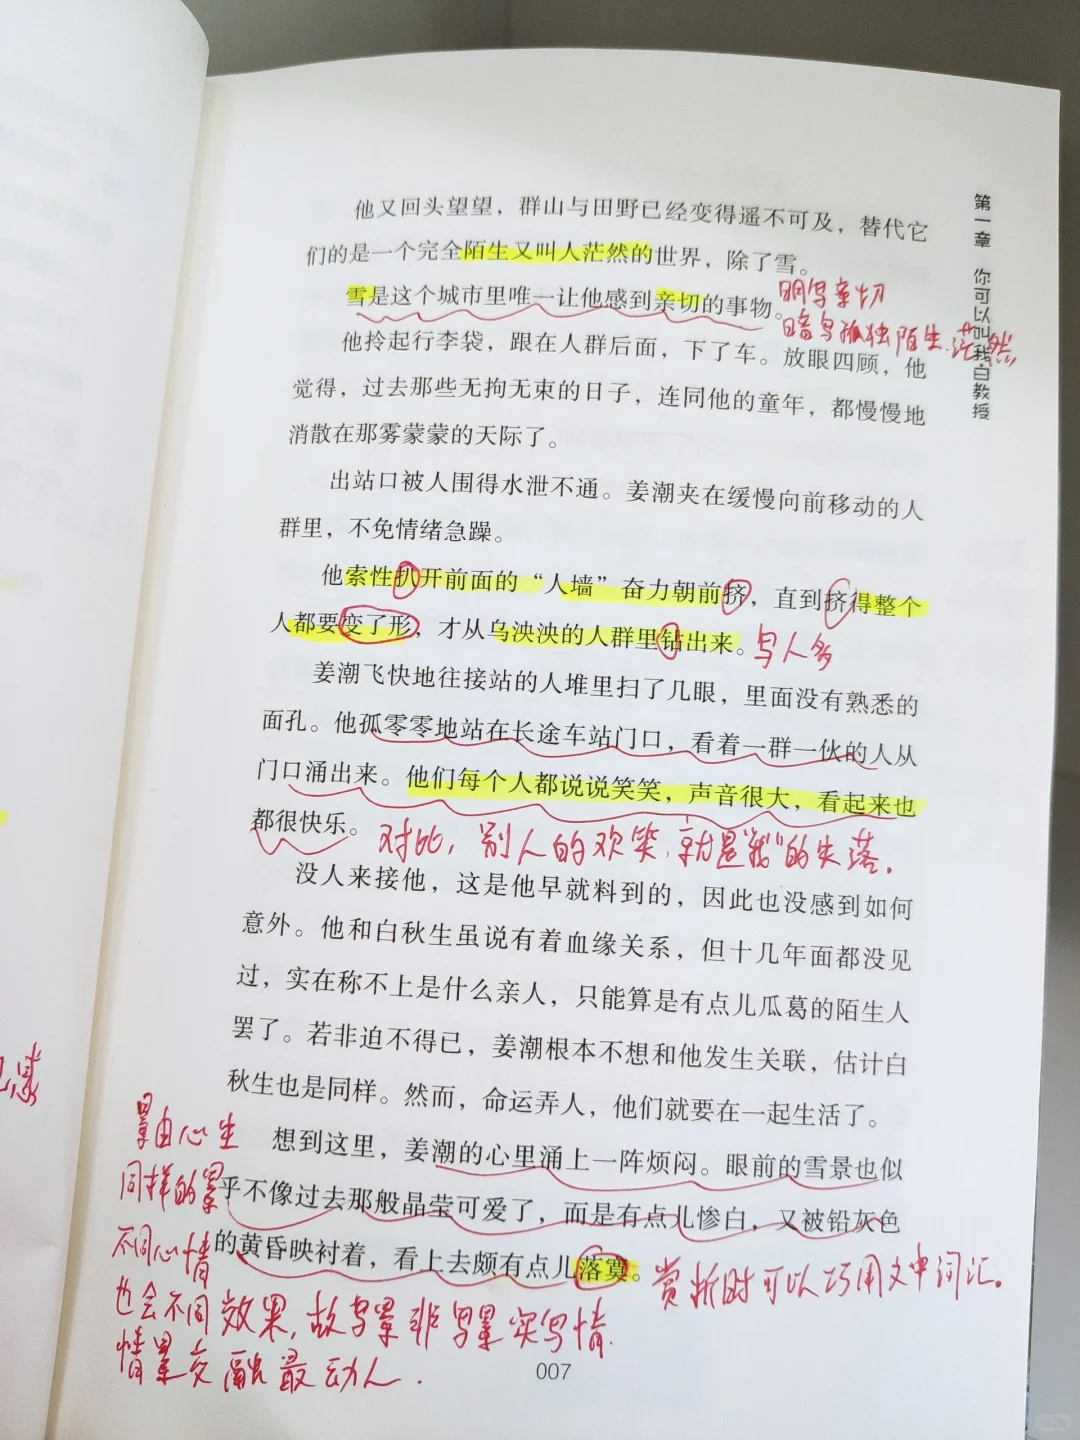 第一章 你可以叫我白教授
他又回头望望，群山与田野已经变得遥不可及，替代它
们的是一个完全陌生又叫人茫然的世界，除了雪。
雪是这个城市里唯一让他感到亲切的事物。
明写亲切
暗写孤独陌生.茫然
他拎起行李袋，跟在人群后面，下了车。放眼四顾，他
觉得，过去那些无拘无束的日子，连同他的童年，都慢慢地
消散在那雾蒙蒙的天际了。
出站口被人围得水泄不通。姜潮夹在缓慢向前移动的人
群里，不免情绪急躁。
他索性扒开前面的“人墙”奋力朝前挤，直到挤得整个
人都要变了形，才从乌泱泱的人群里钻出来。写人多
姜潮飞快地往接站的人堆里扫了几眼，里面没有熟悉的
面孔。他孤零零地站在长途车站门口，看着一群一伙的人从
门口涌出来。他们每个人都说说笑笑，声音很大，看起来也
都很快乐。对比，别人的欢笑，就是“我”的失落。
没人来接他，这是他早就料到的，因此也没感到如何
意外。他和白秋生虽说有着血缘关系，但十几年面都没见
过，实在称不上是什么亲人，只能算是有点儿瓜葛的陌生人
罢了。若非迫不得已，姜潮根本不想和他发生关联，估计白
秋生也是同样。然而，命运弄人，他们就要在一起生活了。
想到这里，姜潮的心里涌上一阵烦闷。眼前的雪景也似
乎不像过去那般晶莹可爱了，而是有点儿惨白，又被铅灰色
的黄昏映衬着，看上去颇有点儿落寞。赏析时可以巧用文中词汇。
景由心生
同样的景
不同心情
也会不同效果，故写景非写景实写情.
情景交融最动人.
007